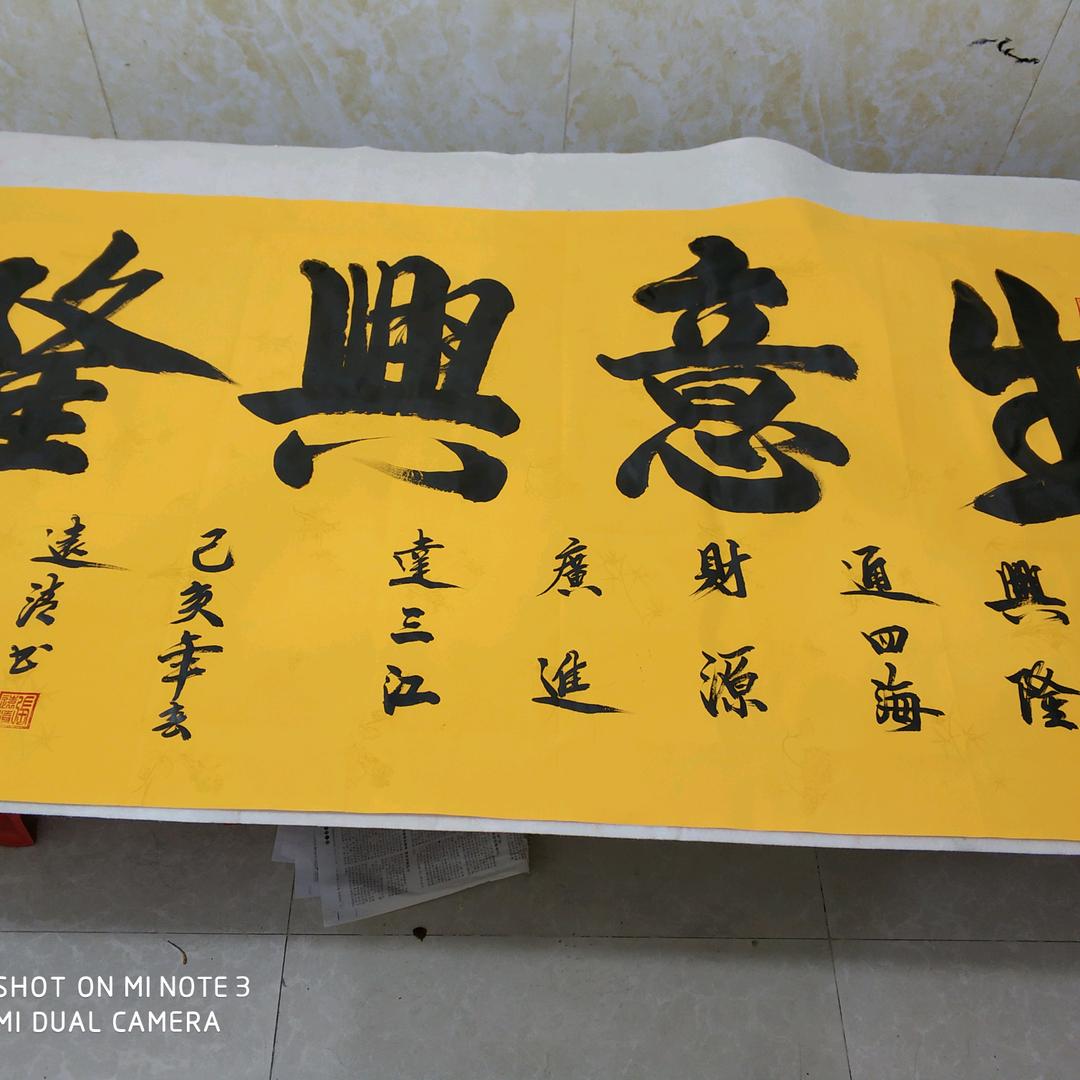 生意興隆
興隆
通四海
財源
廣進
達三江
己亥年春
遠清书
SHOT ON MI NOTE 3
MI DUAL CAMERA